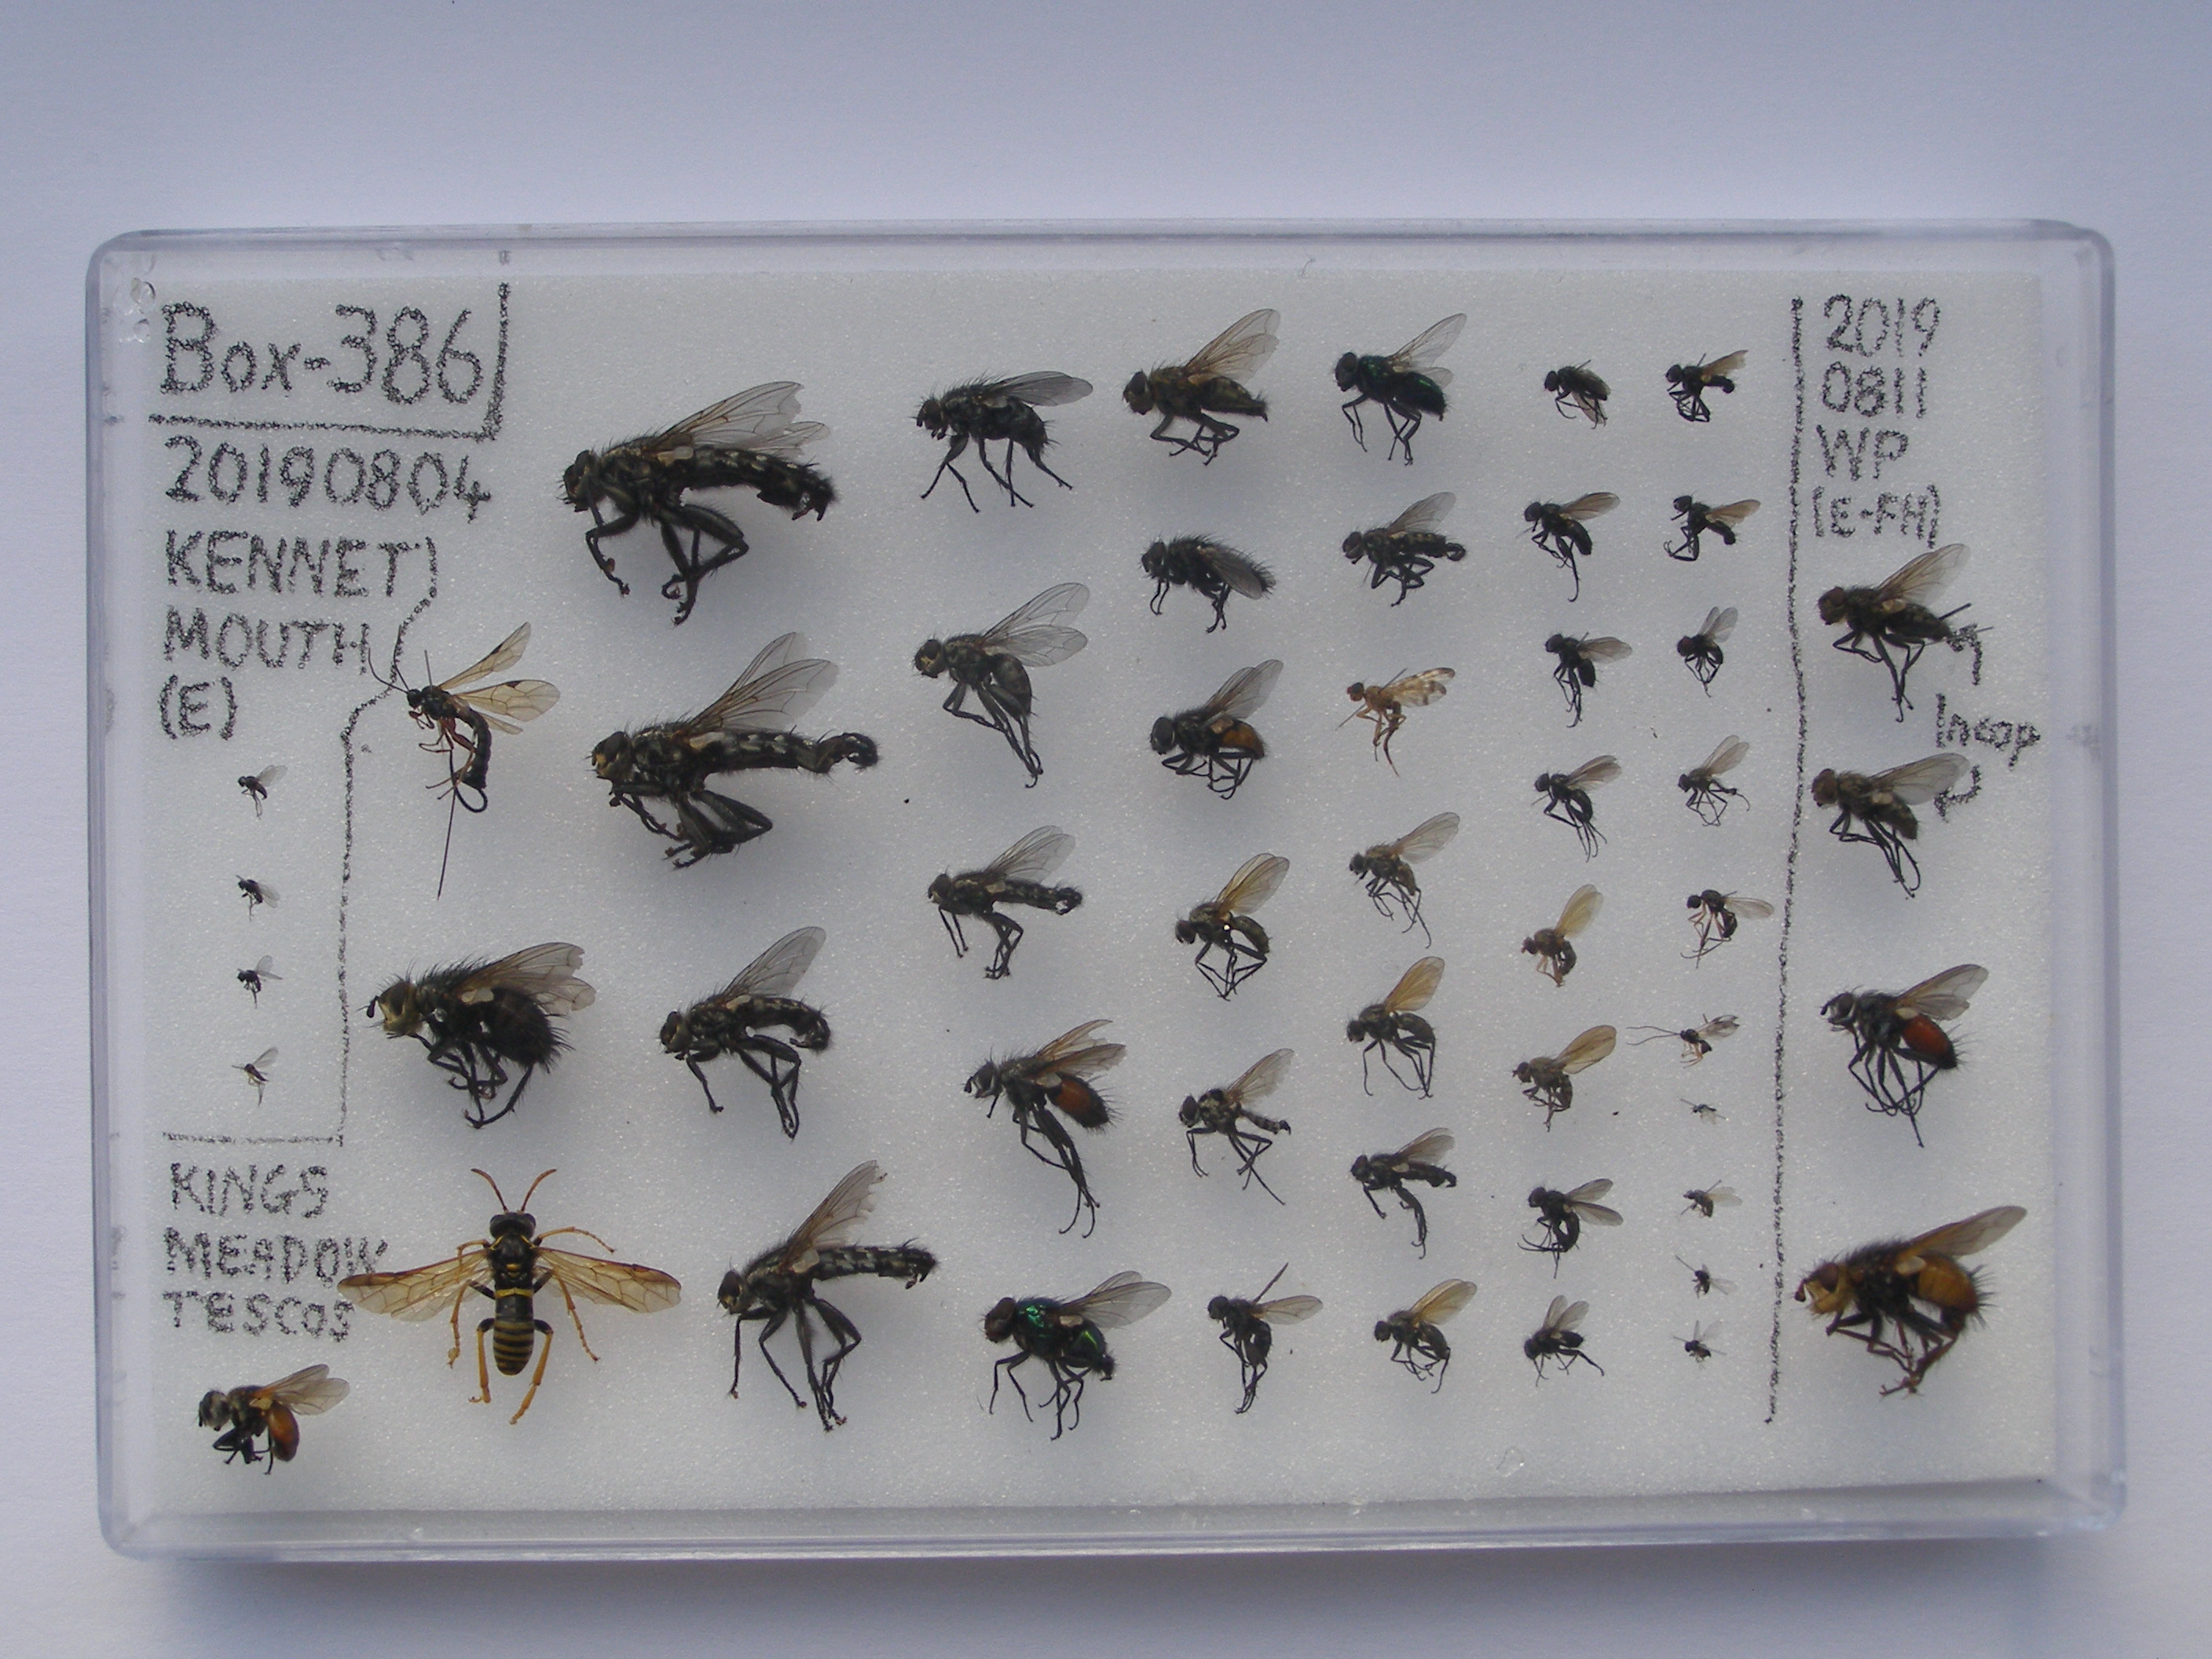 Box-386
20190804
KENNET
MOUTH
(E)
KINGS
MEADOW
TESCOS
2019
0811
WP
(E-FH)
In cop